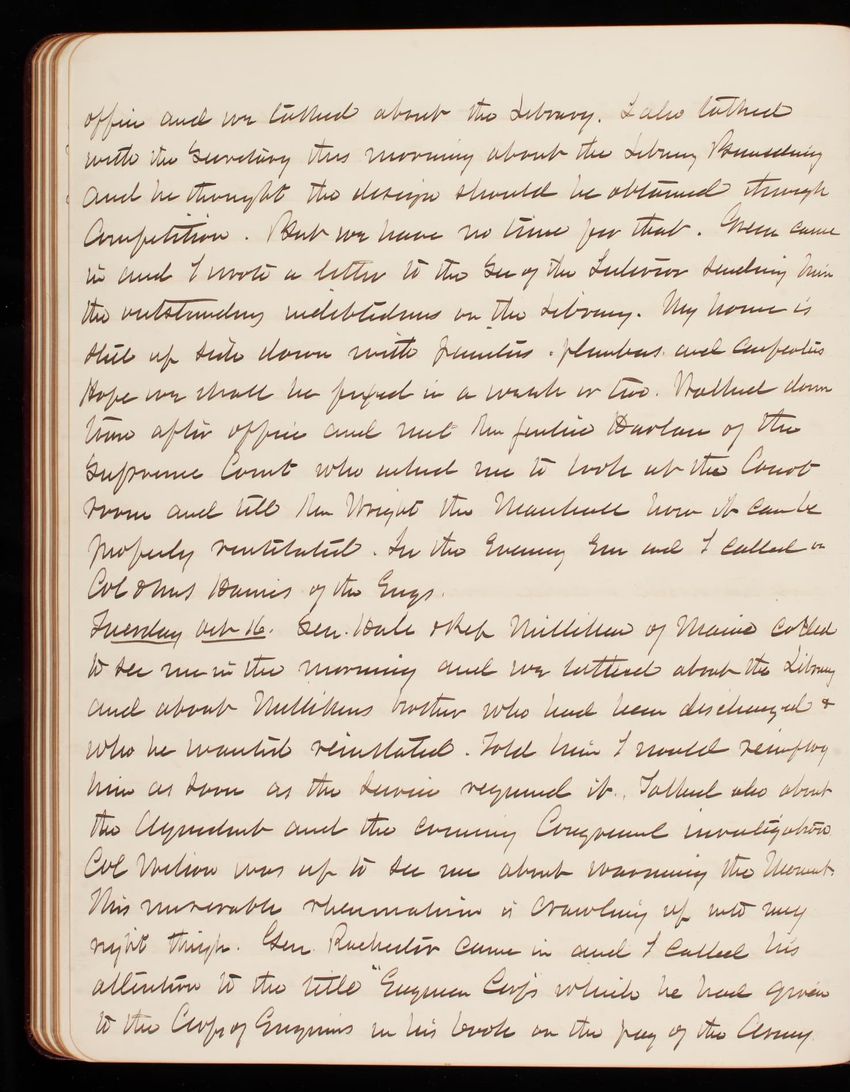 office and we talked about the Library. I also talked
with the Secretary this morning about the Library Building
and he thought the design should be obtained through
Competition. But we have no time for that. Green came
in and I wrote a letter to the Sec of the Interior sending him
the outstanding indebtedness on the Library. My house is
still up side down with painters. plumbers. and carpenters
Hope we shall be fixed in a week or two. Walked down
town after office and met Mr Justice Harlan of the
Supreme Court who asked me to look at the Court
room and tell Mr Wright the Marshall how it can be
properly ventilated. In the Evening Em and I called on
Col & Mrs Harris of the Engs.
Tuesday Oct 16. Sen. Hale & Rep Milliken of Maine called
to see me in the morning and we talked about the Library
and about Millikens brother who had been discharged &
who he wanted reinstated. Told him I would reemploy
him as soon as the service required it. Talked also about
the Aqueduct and the coming Congressnl investigation
Col Wilson was up to see me about warming the Monut.
This miserable rheumatism is crawling up into my
right thigh. Gen. Rochester came in and I called his
attention to the title "Engineer Corps which he had given
to the Corps of Engineers in his book on the pay of the Army.